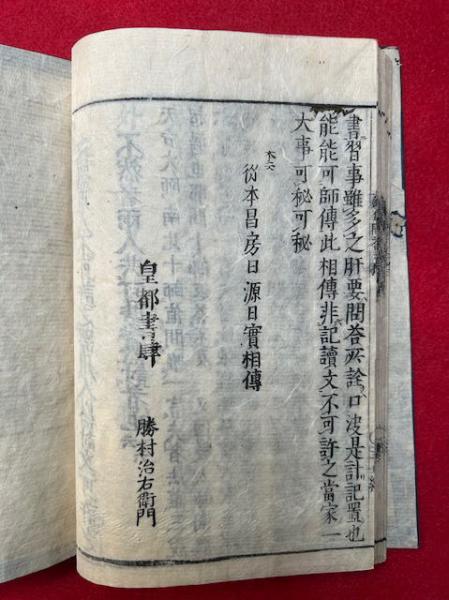 書習事雖多之肝要問答所詮口波是計記置也
能能可師傳此相傳非記讀文不可許之當家一
大事可秘可秘
本云
從本昌房日源日實相傳
皇都書肆 勝村治右衛門